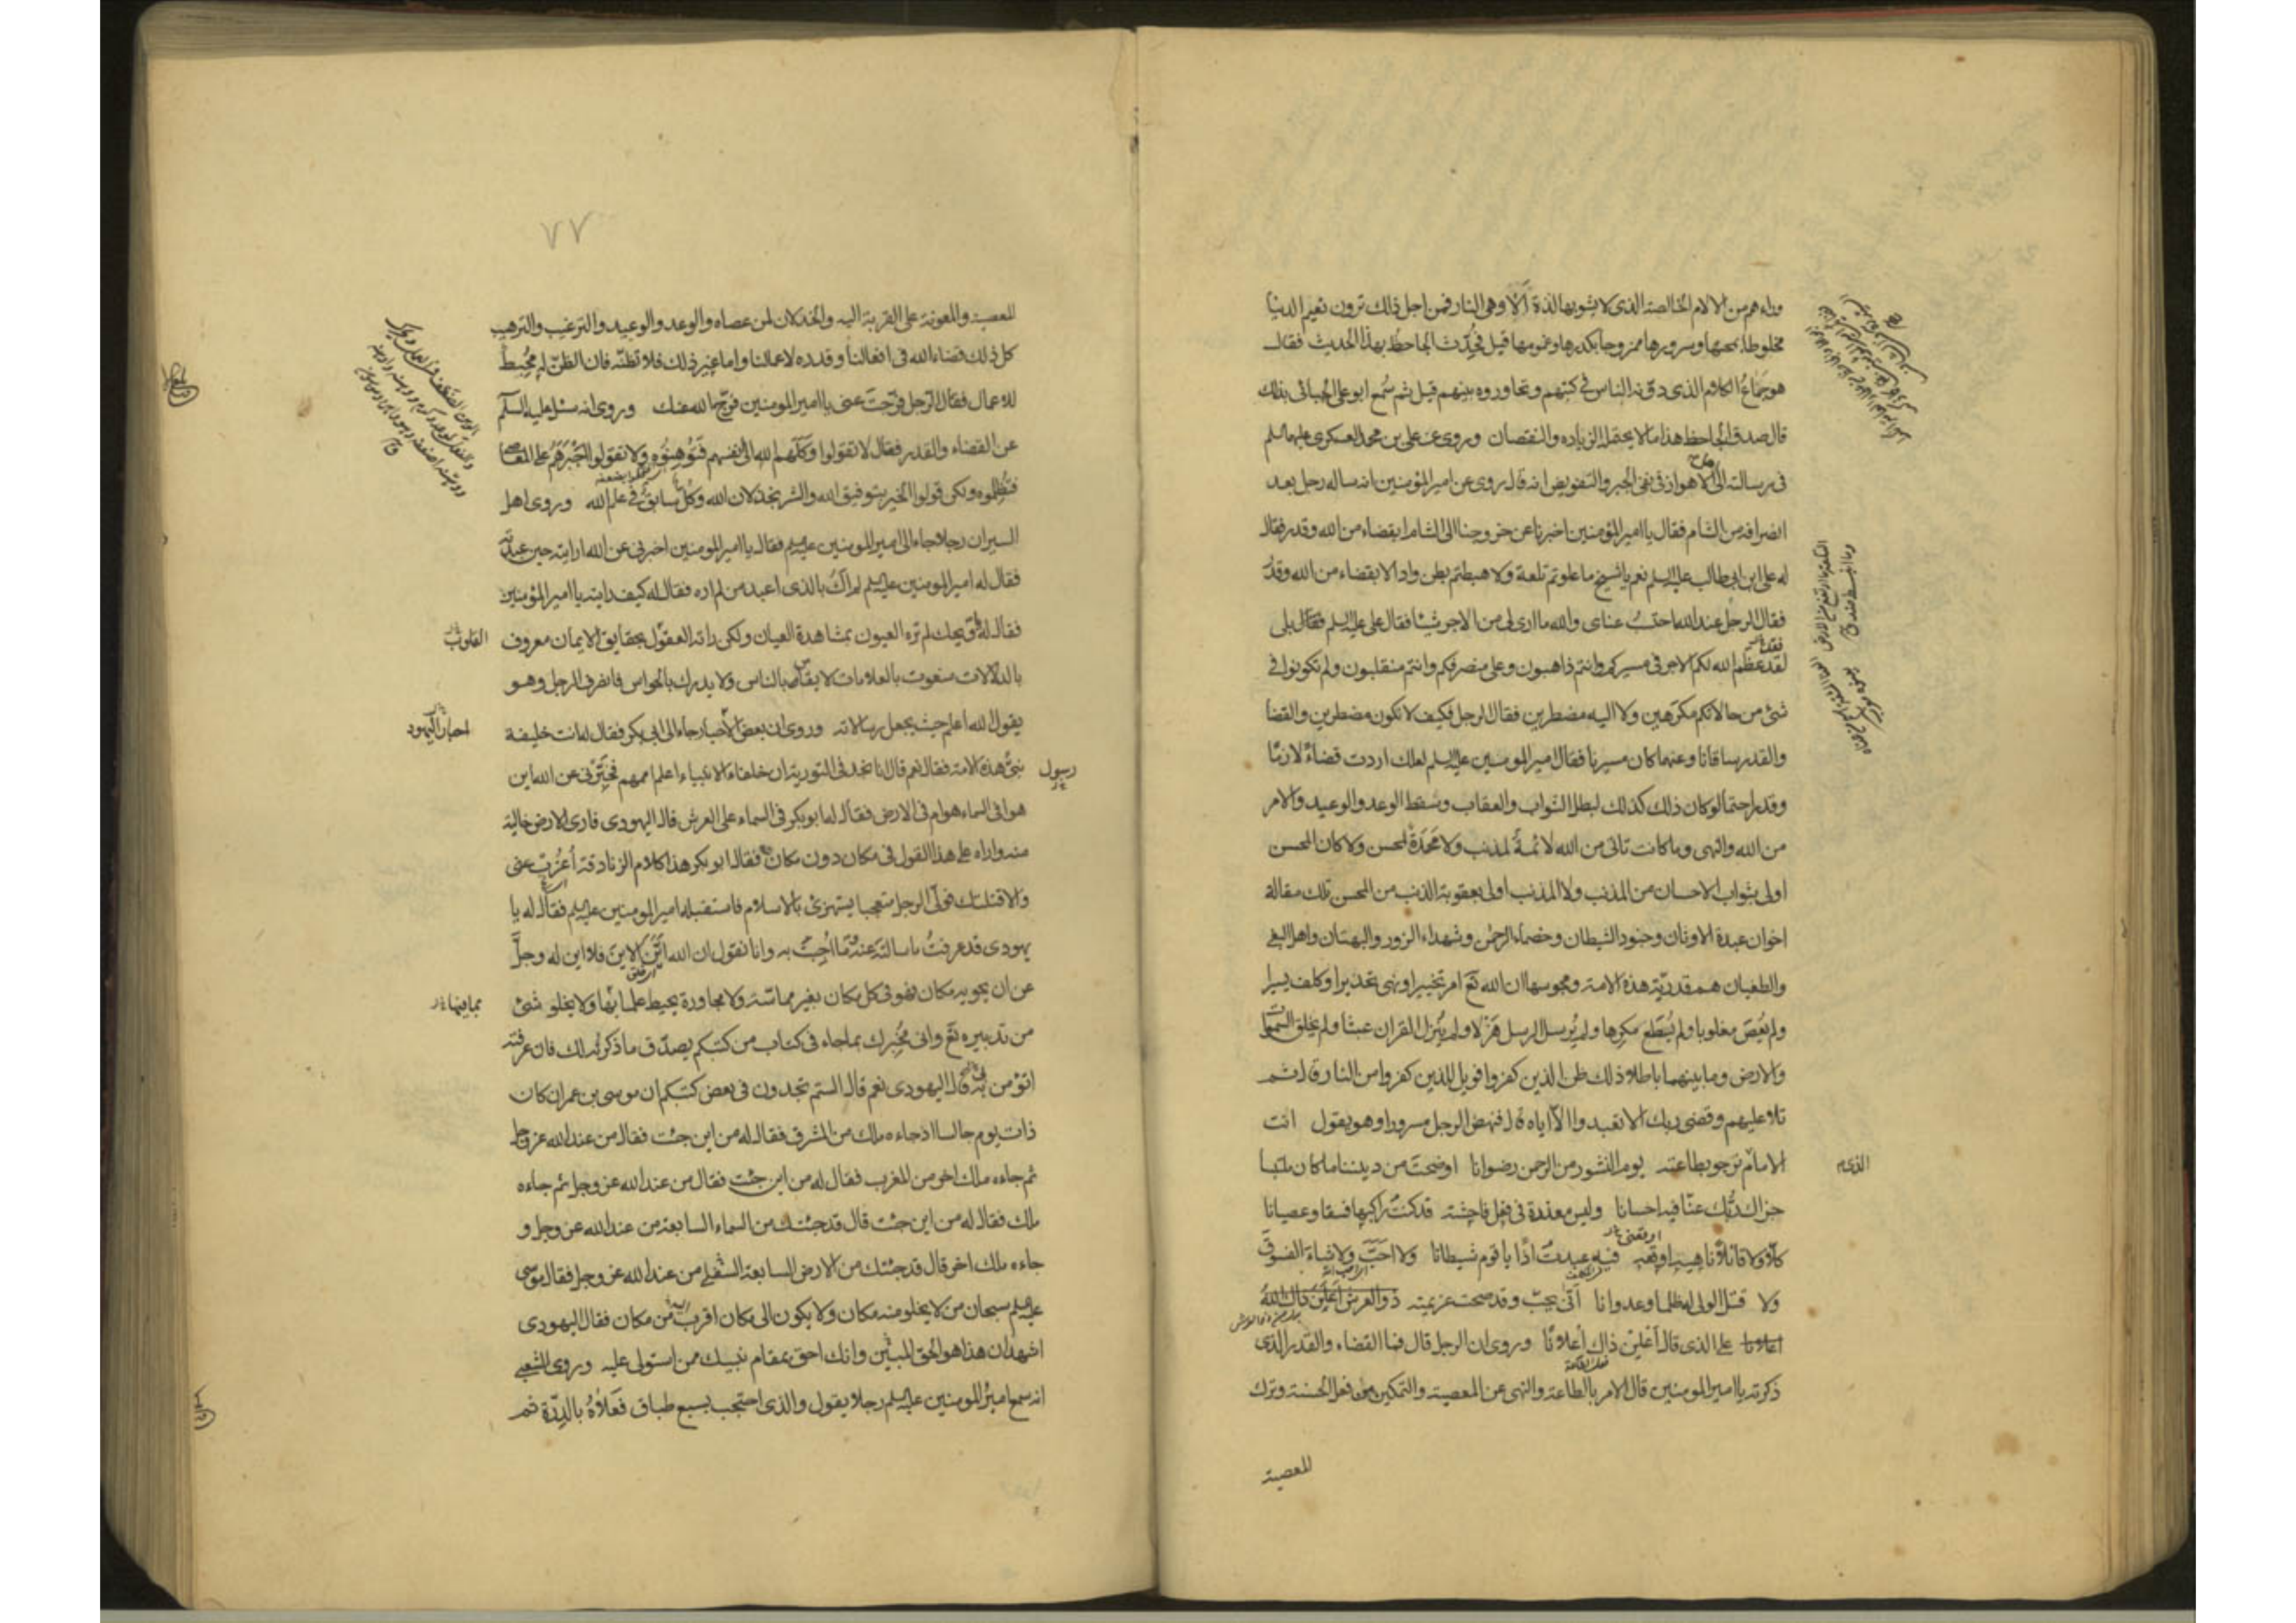 وراءهم من الالام الخالصة الذى لا يشوبها لذة الا وهى النار فمن اجل ذلك ترون نعيم الدنيا
مخلوطا بمحنها وسرورها ممزوجا بكدرها وغمومها قيل فحدّث الجاحظ بهذا الحديث فقال
هو جماع الكلام الذى دوّنه الناس فى كتبهم وتحاوروه بينهم قيل ثم سُمع ابو على الجبائى بذلك
قال صدق الجاحظ هذا ما لا يحتمل الزياده والنقصان وروى عن على بن محمد العسكرى عليهما السلم
فى رسالته الى اهل الاهواز فى نفى الجبر والتفويض انه قال روى عن امير المؤمنين انه ساله رجل بعد
انصرافه من الشام فقال يا امير المؤمنين اخبرنا عن خروجنا الى الشام ابقضاء من الله وقدر فقال
له على ابن ابى طالب عليه السلم نعم يا شيخ ما علوتم تلعة ولا هبطتم بطن واد الا بقضاء من الله وقدر
فقال الرجل عند الله احتسب عناى والله ما ارى لى من الاجر شيئا فقال على عليه السلم فقال بلى
لقد عظم الله لكم الاجر فى مسيركم وانتم ذاهبون وعلى منصرفكم وانتم منقلبون ولم تكونوا فى
شئ من حالاتكم مكرهين ولا اليه مضطرين فقال الرجل فكيف لا نكون مضطرين والقضا
والقدر ساقانا وعنهما كان مسيرنا فقال امير المومنين عليه السلم لعلك اردت قضاءً لازما
وقدرا حتما لو كان ذلك كذلك لبطل الثواب والعقاب وسقط الوعد والوعيد والامر
من الله والنهى وما كانت تاتى من الله لائمة لمذنب ولا محمدة لمحسن ولا كان المحسن
اولى بثواب الاحسان من المذنب ولا المذنب اولى بعقوبة الذنب من المحسن تلك مقالة
اخوان عبدة الاوثان وجنود الشيطان وخصماء الرحمن وشهداء الزور والبهتان واهل البغى
والطغيان هم قدريّة هذه الامة ومجوسها ان الله تع امر تخييرا ونهى تحذيرا وكلف يسيرا
ولم يُعصَ مغلوبا ولم يُطَع مكرها ولم يُرسل الرسل هزلا ولم يُنزل القران عبثا ولم يخلق السموات
والارض وما بينهما باطلا ذلك ظن الذين كفروا فويل للذين كفروا من النار قال ثم
تلا عليهم وقضى ربك الا تعبدوا الا اياه قال فنهض الرجل مسرورا وهو يقول انت
الامام نرجو بطاعته يوم النشور من الرحمن رضوانا اوضحت من ديننا ما كان ملتبسا
الذى
جزاك ربّك عنّا فيه احسانا وليس معذرة فى فعل فاحشة قد كنت راكبها فسقا وعصيانا
كلّا ولا قائلا ناهيه اوقعه فيه عبدت اذًا يا قوم شيطانا ولا احبّ ولا شاء الفسوق
ولا قتل الولى له ظلما وعدوانا انّى يحبّ وقد صحت عزيمته ذو العرش اعلن ذاك الله
اعلانا على الذى قال اعلن ذاك اعلانا وروى ان الرجل قال فما القضاء والقدر الذى
ذكرته يا امير المومنين قال الامر بالطاعة والنهى عن المعصية والتمكين من فعل الحسنة وترك
المعصية
٧٧
المعصية والمعونة على القربة اليه والخذلان لمن عصاه والوعد والوعيد والترغيب والترهيب
كل ذلك قضاء الله فى افعالنا وقدره لاعمالنا واما غير ذلك فلا تظنّه فان الظنّ له محبط
للاعمال فقال الرّجل فرّجتَ عنى يا امير المومنين فرّج الله عنك وروى انه سئل عليه السلم
عن القضاء والقدر فقال لا تقولوا وكلهم الله الى انفسهم فتوهنوه ولا تقولوا اجبرهم على المعاصى
فتظلموه ولكن قولوا الخير بتوفيق الله والشر بخذلان الله وكل سابق فى علم الله وروى اهل
السير ان رجلا جاء الى امير المومنين عليه السلم فقال يا امير المومنين اخبرنى عن الله ارايته حين عبدته
فقال له امير المومنين عليه السلم لم اك بالذى اعبد من لم اره فقال له كيف رايته يا امير المؤمنين
فقال له ويحك لم تره العيون بمشاهدة العيان ولكن راته العقول بحقايق الايمان معروف
القلوب
بالدلالات منعوت بالعلامات لا يقاس بالناس ولا يدرك بالحواس فانصرف الرجل وهو
يقول الله اعلم حيث يجعل رسالاته وروى ان بعض الاحبار جاء الى ابى بكر فقال له انت خليفة
احبار اليهود
رسول
نبىّ هذه الامة فقال نعم قال انا نجد فى التورية ان خلفاء الانبياء اعلم اممهم فخبّرنى عن الله اين
هو افى السماء هو ام فى الارض فقال له ابو بكر فى السماء على العرش قال اليهودى فارى الارض خالية
منه واراه على هذا القول فى مكان دون مكان فقال ابو بكر هذا كلام الزنادقة اعزب عنى
والا قتلتك فولّى الرجل متعجبا يستهزئ بالاسلام فاستقبله امير المومنين عليه السلم فقال له يا
يهودى قد عرفتُ ما سالتَ عنه وما اجبت به وانا نقول ان الله ايّن الاينَ فلا اين له وجلّ
عن ان يحويه مكان فهو فى كل مكان بغير مماسّة ولا مجاورة يحيط علما بها ولا يخلو شئ
بما فيها
من تدبيره تع وانى مخبرك بما جاء فى كتاب من كتبكم يصدّق ما ذكرته لك فان عرفته
اتؤمن به قال اليهودى نعم قال الستم تجدون فى بعض كتبكم ان موسى بن عمران كان
ذات يوم جالسا اذ جاءه ملك من المشرق فقال له من اين جئت فقال من عند الله عز وجل
ثم جاءه ملك اخر من المغرب فقال له من اين جئت فقال من عند الله عز وجل ثم جاءه
ملك فقال له من اين جئت قال قد جئتك من السماء السابعة من عند الله عز وجل و
جاءه ملك اخر قال قد جئتك من الارض السابعة السفلى من عند الله عز وجل فقال موسى
عليه السلم سبحان من لا يخلو منه مكان ولا يكون الى مكان اقرب من مكان فقال اليهودى
اشهد ان هذا هو الحق المبين وانك احق بمقام نبيك ممن استولى عليه وروى الشعبى
انه سمع امير المومنين عليه السلم رجلا يقول والذى احتجب بسبع طباق فعلاه بالدِرّة ثم